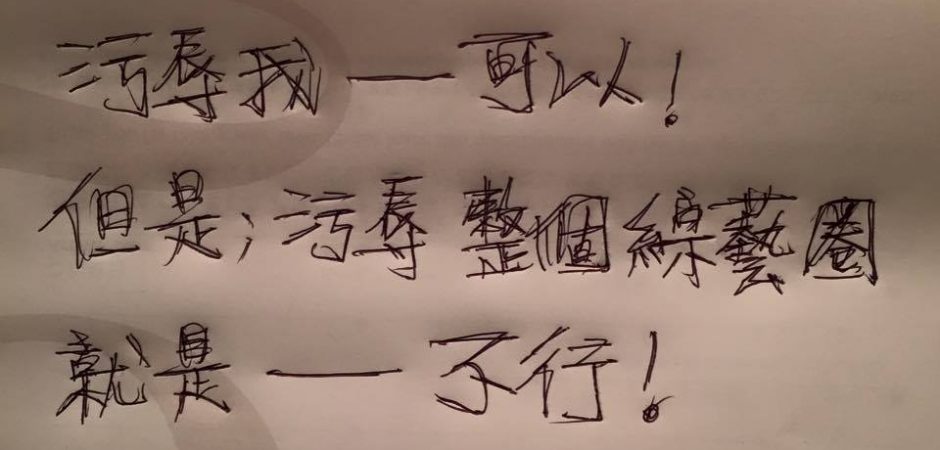 污辱我——可以！
但是；污辱整個綜藝圈
就是——不行！